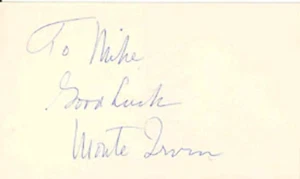 To Mike
Good Luck
Monte Irvin